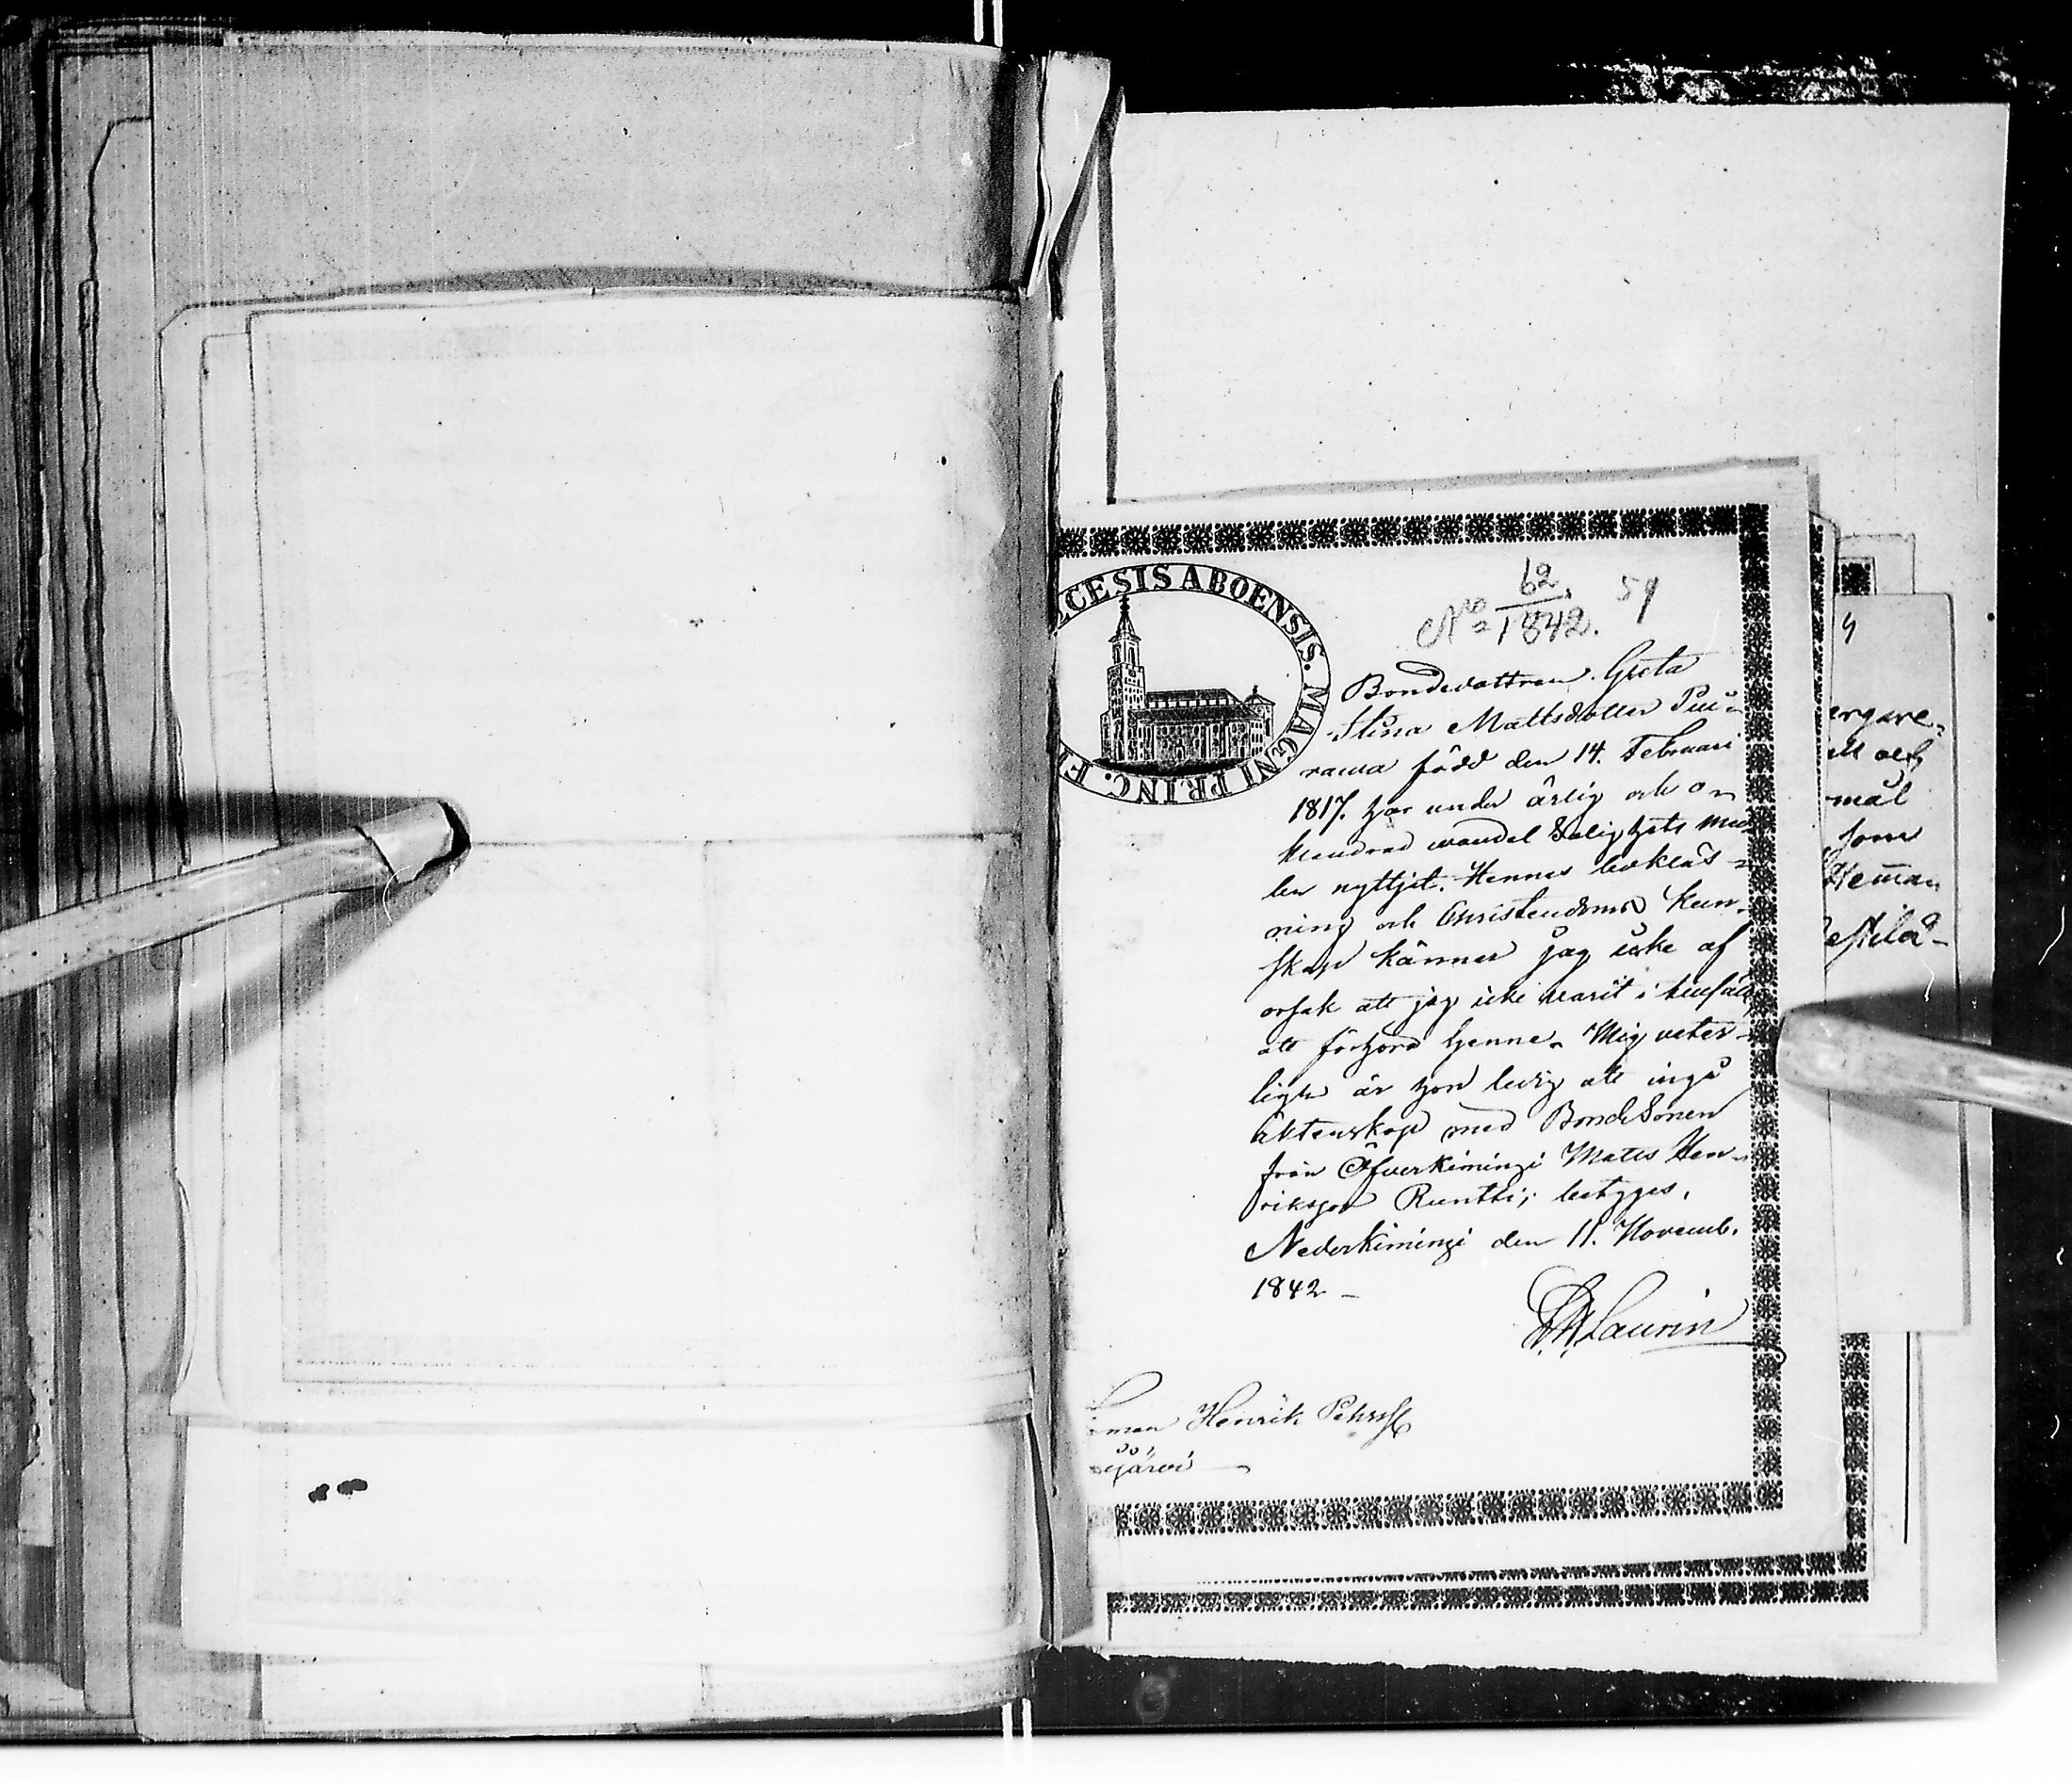 DIOCESIS ABOENSIS. MAGNI PRINC. FI
62 59
No 1842.
Bondedottren Greta
Stina Mattsdotter Pui-
rawa född den 14. Februari
1817. har under ärlig och o-
klandrad wandel Salighets med
len nyttjat. Hennes bokläs-
ning och Christendoms kun-
skap känner jag icke af
orsak att jag icke warit i tillfälle
att förhöra henne. Mig veter-
ligen är hon ledig att ingå
äktenskap med Bondesonen
från Öfverkiminge Matts Hen-
riksson Runtti; betygas,
Nederkiminge den 11. Novemb.
1842 -
Laurin
man Henrik Pehrss
järvi
ergare-
ett och
mål
som
Heman